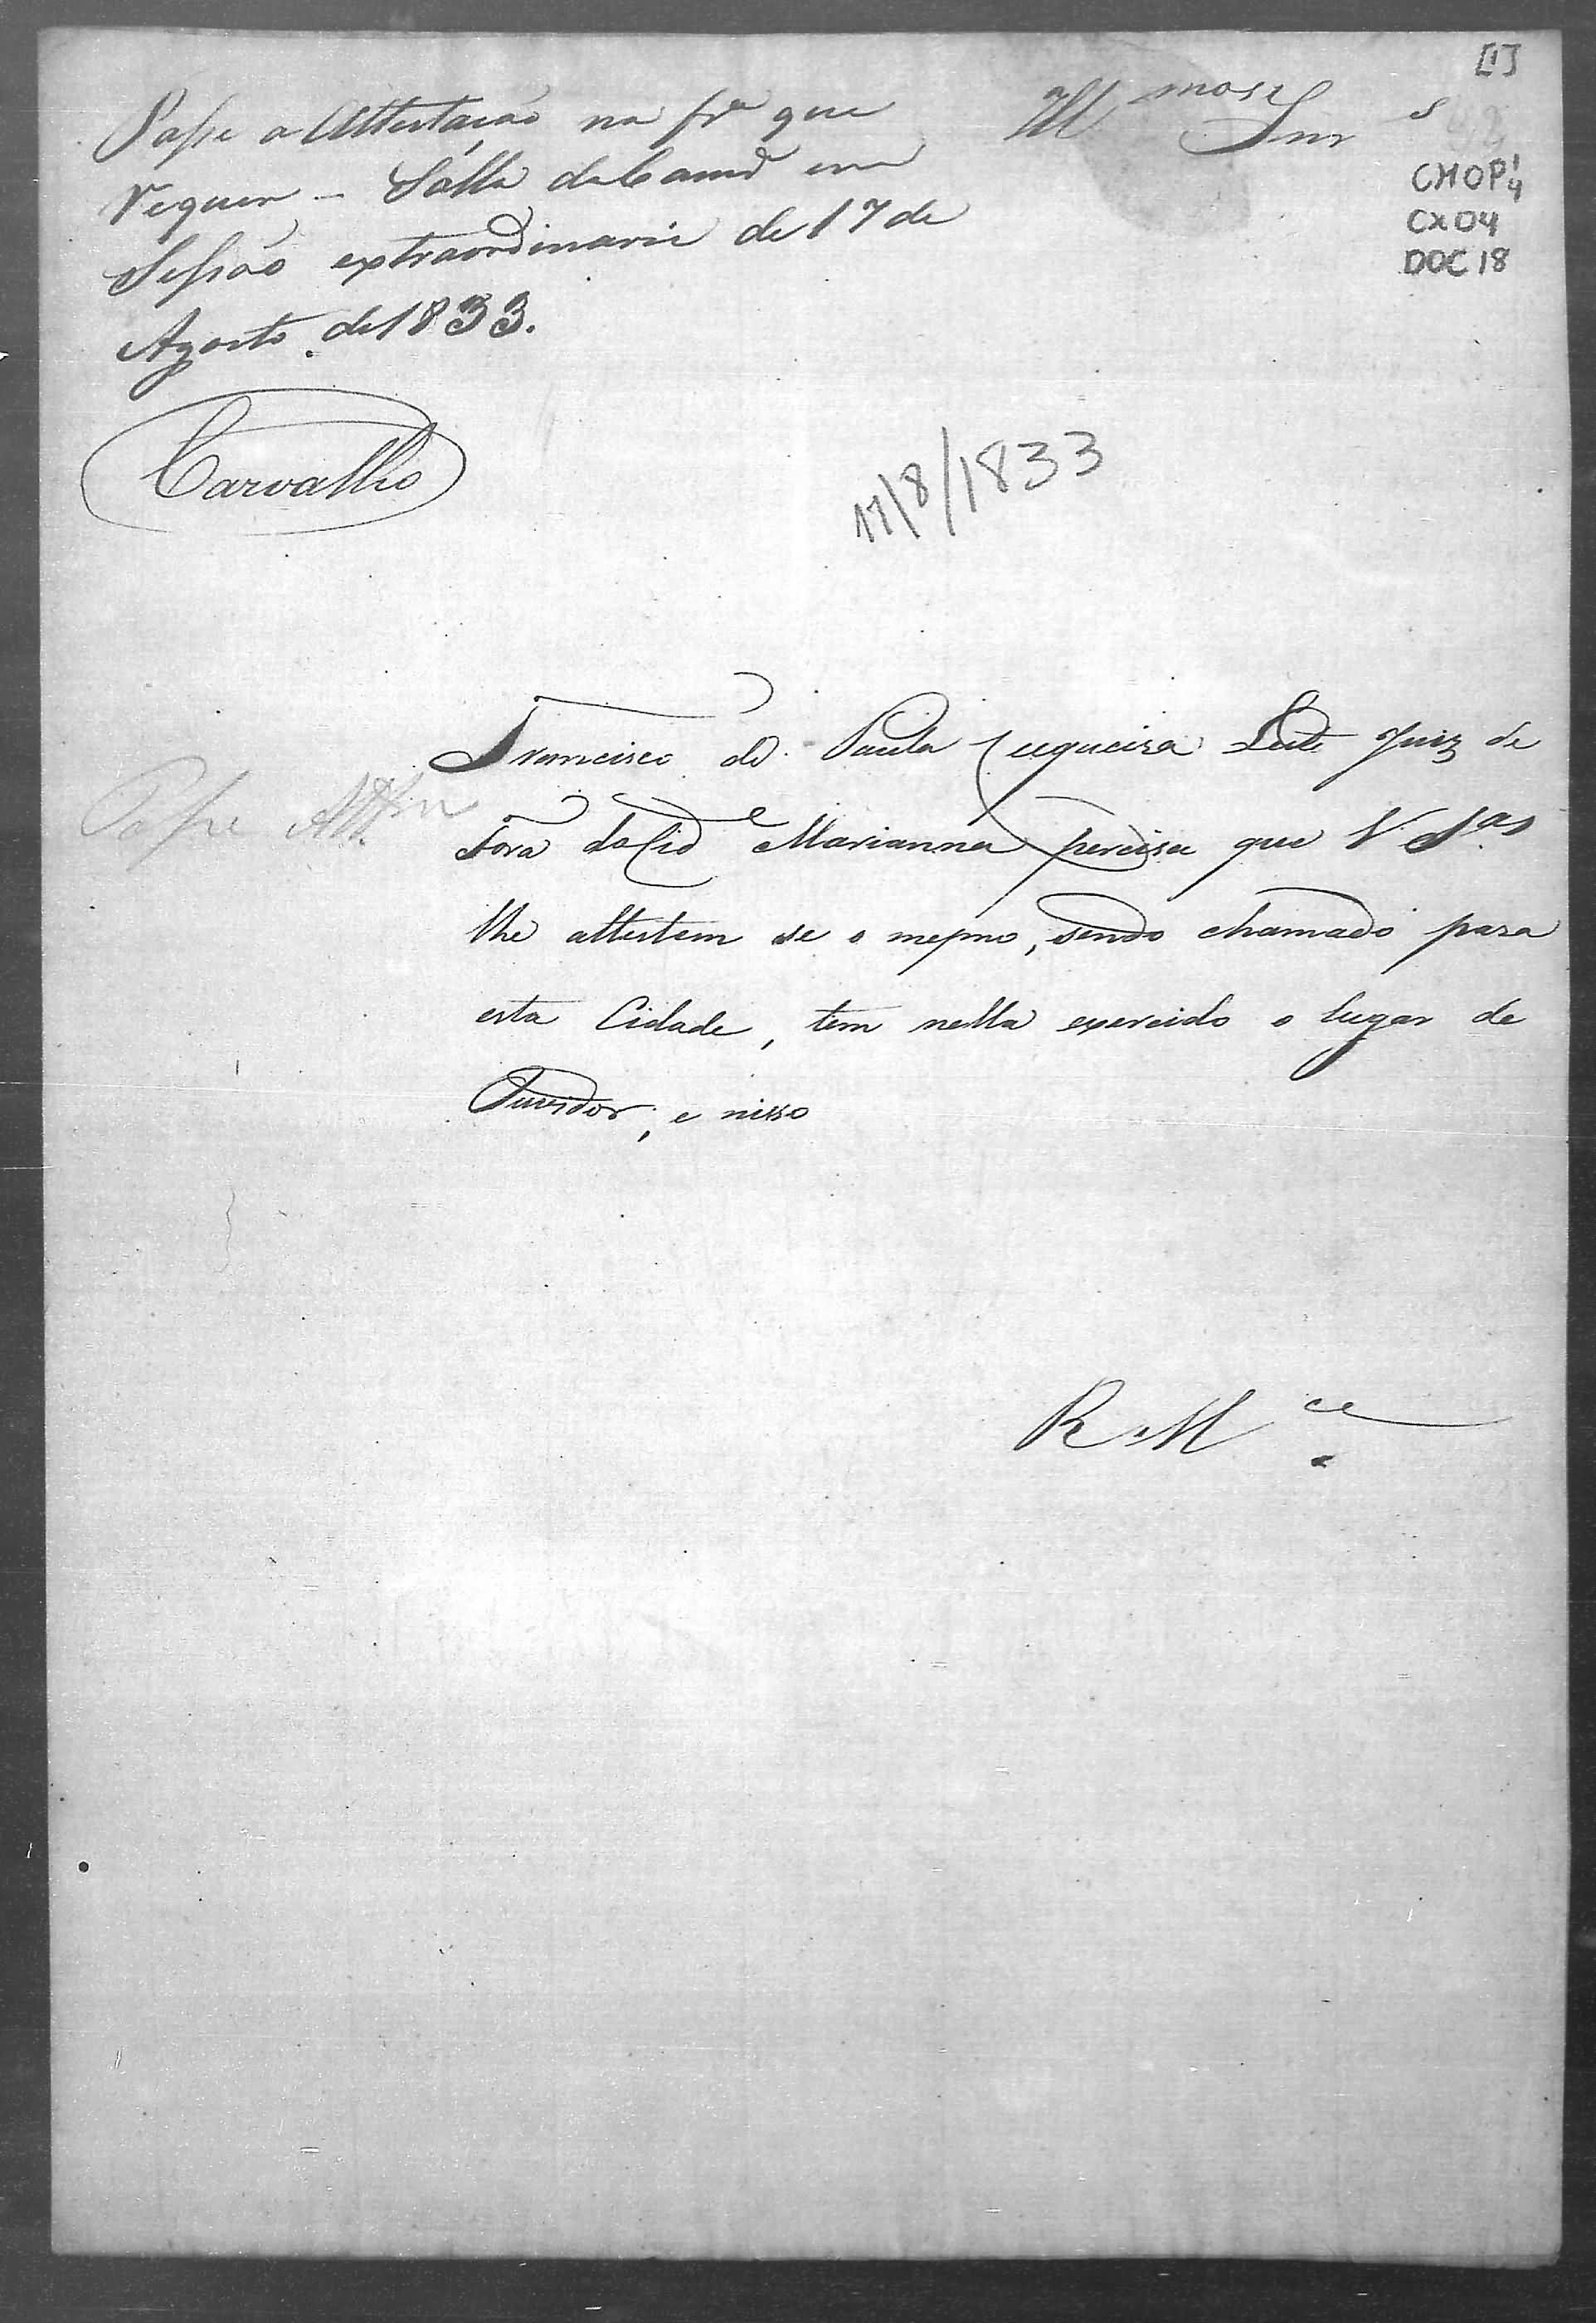 [1]
Passe a Attestação na fr.ª que
requer – Sálla da Camrª em
Sessão extraordinaria de 17 de
Agosto de 1833.
Carvalho
Ill mos e Snr s
CMOP 1/4
CX 04
DOC 18
17/8/1833
Francisco de Paula Cerqueira Leite Juiz de
Fora da Cid e Marianna percisa que V S.as
lhe attestem se o mesmo, sendo chamado para
esta Cidade, tem nella exercido o lugar de
Ouvidor, e nisso
Passe Att.m
R. M ce